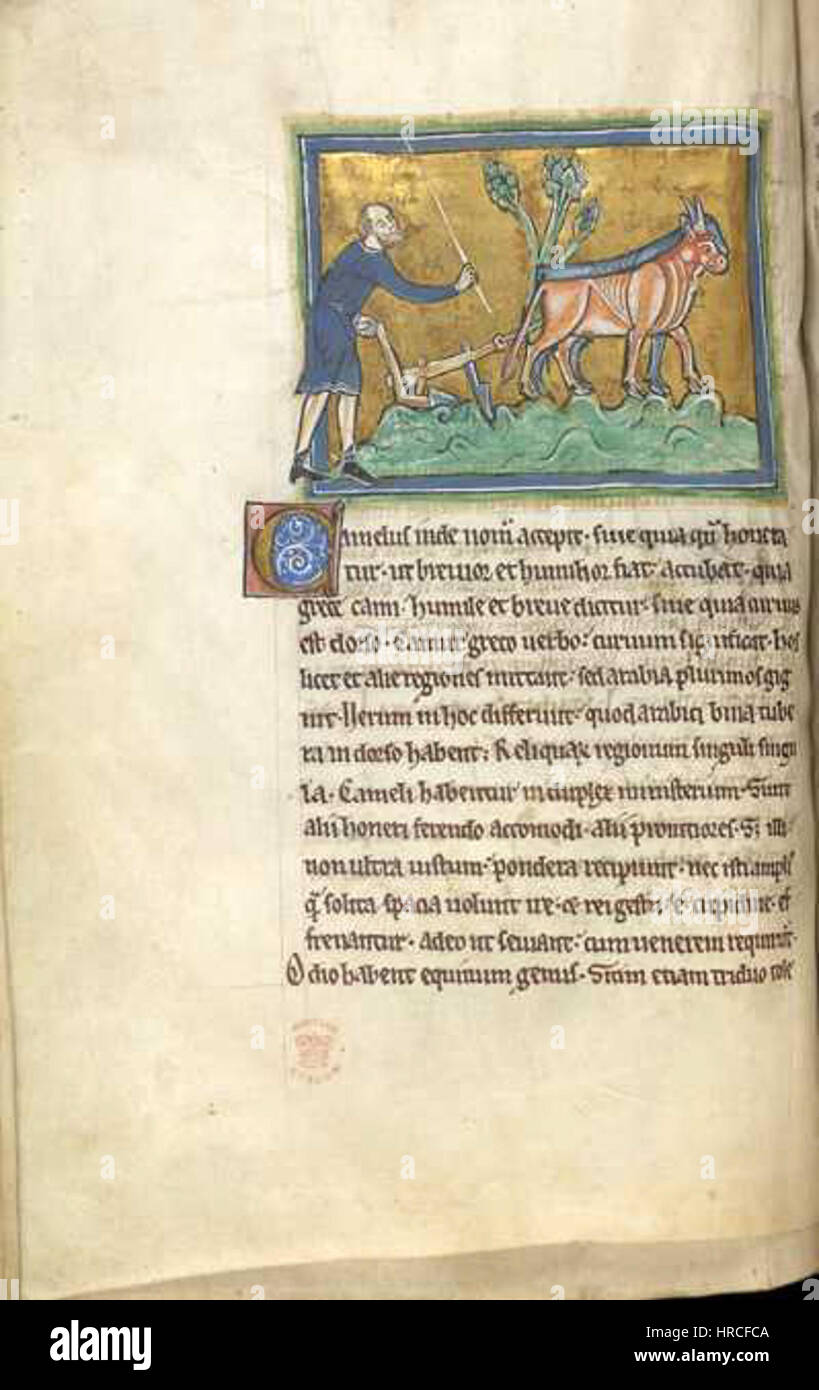 Camelus inde nom̄ accepit · siue quia qn̄ honera
tur · ut breuior et humilior fiat · accubat · quia
grece cami · humile et breue dicitur · siue quia curuus
est dorso · camur greco uerbo · curuum significat · hos
licet et alie regiones mittant · sed arabia plurimos gig
nit · Uerum in hoc differunt · quod arabici bina tube
ra in dorso habent ; Reliquar regionum singuli singu
la · Cameli habentur in duplex ministerium · Sunt
alii honeri ferendo accomodi · alii p̄nitiores · S;
non ultra iustum · pondera recipiunt · nec isti ampli᷒
q̄ solita spacia uolunt ire ·
frenantur · adeo ut seuiant · cum uenerem requirunt ·
Odio habent equinum genus · Sitim etiam triduo tole
alamy
alamy stock photo
HRCFCA
www.alamy.com